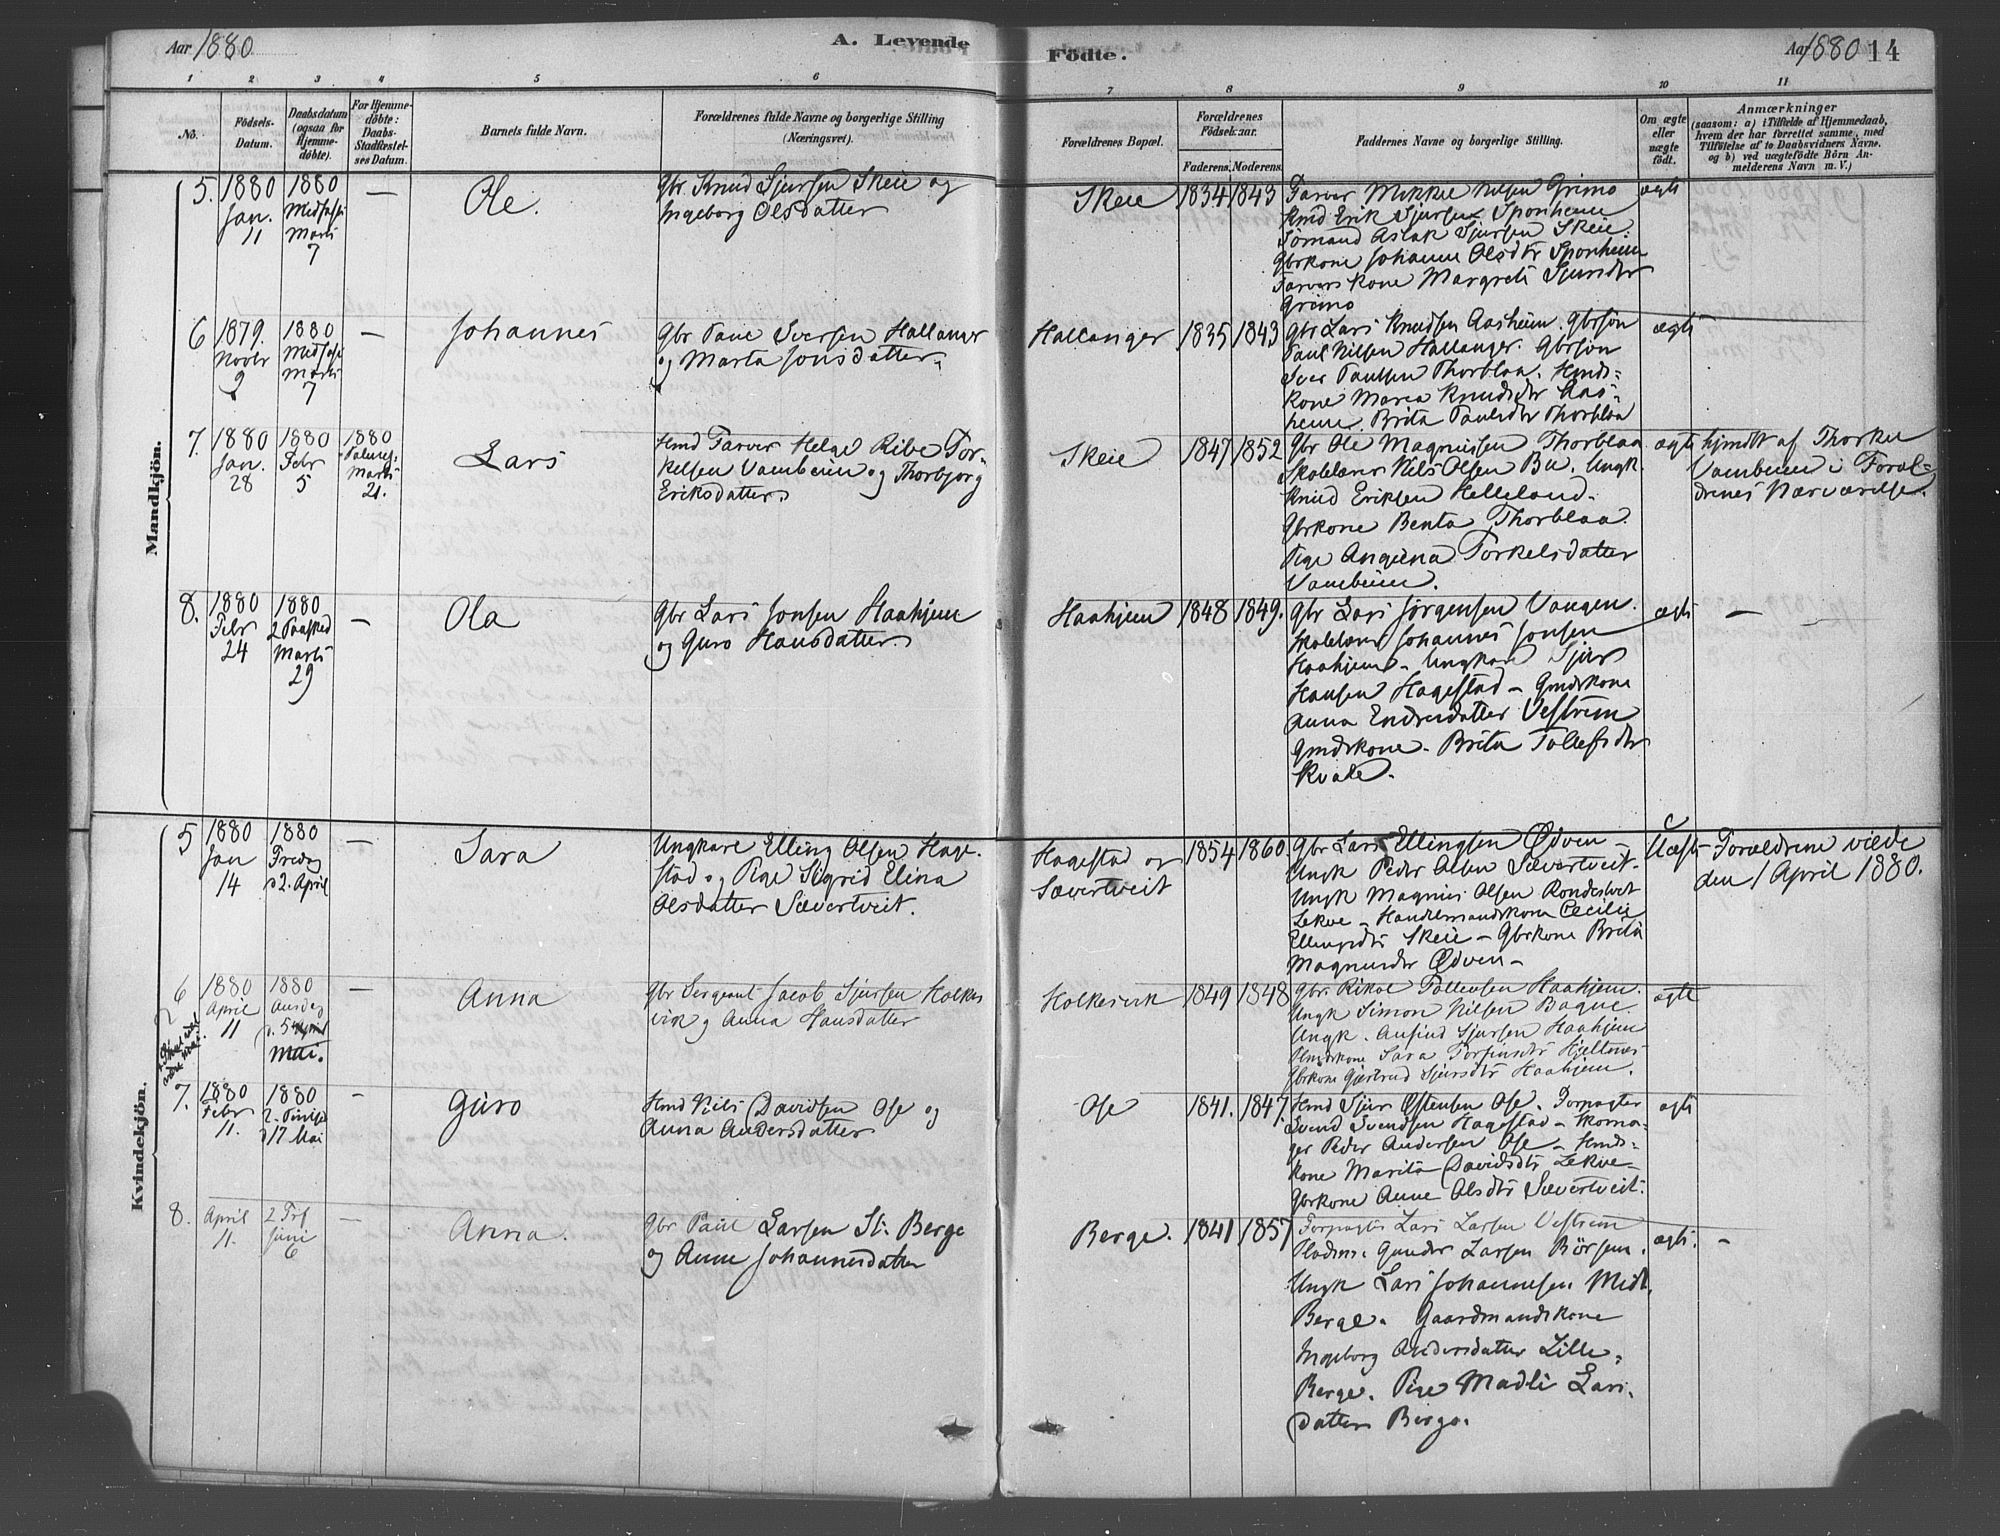 Aar 1880
A. Levende
Födte.
Aar 1880 14
1 2 3 4 5 6 7 8 9 10 11
No.
Födsels-
Datum.
Daabsdatum
(ogsaa for
Hjemme-
döbte).
For Hjemme-
döbte:
Daabs-
Stadfæstel-
ses Datum.
Barnets fulde Navn.
Forældrenes fulde Navne og borgerlige Stilling
(Næringsvei).
Forældrenes Bopæl.
Forældrenes
Födselsaar.
Faderens. Moderens.
Faddernes Navne og borgerlige Stilling.
Om ægte
eller
uægte
födt.
Anmærkninger
(saasom: a) i Tilfælde af Hjemmedaab,
hvem der har forrettet samme, med
Tilföielse af to Daabsvidners Navne.
og b) ved uægtefödte Börn An-
melderens Navn m. V.)
Mandkjön.
5. 1880
Jan.
11
1880
Marts
7
—
Ole.
Gbr. Knud Sjursen Skeie og
Ingeborg Olsdatter
Skeie
1834 1843
Farver Mikkel Nilsen Grimo
Hmd Erik Sjursen Sponheim
Sömand Aslak Sjursen Skeie.
Gbrkone Johanne Olsdtr Sponheim
Farvers kone Margrete Sjursdtr
Grimo
ægte
6 1879.
Novbr
9
1880
Marts
7
—
Johannes
Gbr Paul Iversen Hallanger
og Marta Jonsdatter.
Hallanger
1835 1843
Gbr Lars Knudsen Aasheim. Gbrsön
Paul Nilsen Hallanger. Gbrsön
Iver Paulsen Thorblaa. Hmds-
kone Maria Knudsdtr Aas-
heim. Brita Paulsdtr Thorblaa
ægte
7. 1880
Jan.
28
1880
Febr
5
1880
Palmes.
Marts
21.
Lars
Hmd Farver Helge Ribe Tor-
kelsen Vambeim og Thorbjorg
Eriksdatter.
Skeie
1847 1852
Gbr Ole Magnusen Thorblaa
Skolelærer Nils Olsen Bu. Ungk.
Knud Eriksen Helleland.
Gbrkone Benta Thorblaa.
Pige Angunna Torkelsdatter
Vambeim.
ægte
hjmdt af Thorkel
Vambeim i Foræl-
drenes Nærværelse.
8. 1880
Febr
24
1880
2 Paasked
Marts
29
—
Ola
Gbr Lars Jonsen Haahjem
og Guro Hansdatter.
Haahjem
1848 1849.
Gbr Lars Jörgensen Vangen.
Skolelærer Johannes Jonsen
Haahjem. Ungkar Sjur
Hansen Hagestad — Gmdskone
Anna Endresdatter Vestrem
Gmdskone. Brita Tollefsdtr
Kvale.
ægte
—
Kvindekjön.
5 1880
Jan
14
1880
Fredag
d 2. April
—
Sara
Ungkarl Elling Olsen Hage-
stad og Pige Sigrid Elina
Olsdatter Sævertveit.
Hagestad og
Sævertveit
1854 1860.
Gbr Lars Ellingsen Ødven —
Ungk Peder Olsen Sævertveit.
Ungk Magnus Olsen Rondestveit
Lekve — Handelsmandskone Cecilie
Ellingsdtr Skeie — Gbrkone Brita
Magnusdtr Ødven —
Uægte
Forældrene viede
den 1 April 1880.
6 1880
April
11
1880
Onsdag
d. 5
Mai.
—
Anna
Gbr Sergeant Jacob Sjursen Holke-
vik og Anna Hansdatter
Holkesvik
1849 1848
Gbr. Rikol Tollevsen Haahjem.
Ungk Simon Nilsen Bagne.
Ungk. Anfind Sjursen Haahjem
Hmdskone Sara Torfinsdtr Hjeltnes
Gbrkone Gjertrud Sjursdtr Haahjem.
ægte
7. 1880
Febr
11.
1880
2. Pintsed
d 17 Mai
—
Guro
Hmd Niels Davidsen Ose og
Anna Andersdatter
Ose
1841. 1847.
Hmd Sjur Østensen Ose. Forpagter
Svend Svendsen Hagestad — Skoma-
ger Peder Andersen Ose — Hmds-
kone Marita Davidsdtr Lekve —
Gbrkone Anne Olsdtr Sævertveit.
ægte
8. April
11.
2 Trf
Juni
6
—
Anna.
Gbr Paul Larsen St. Berge
og Anne Johannesdatter
Berge.
1841 1857
Forpagter Lars Larsen Vestrem
Gunder Larsen Börsem.
Ungk Lars Johannesen Midt
Berge. Gaardmandskone
Ingeborg Andersdatter Lille-
Berge. Pige Madli Lars-
datter Berge.
ægte.
—